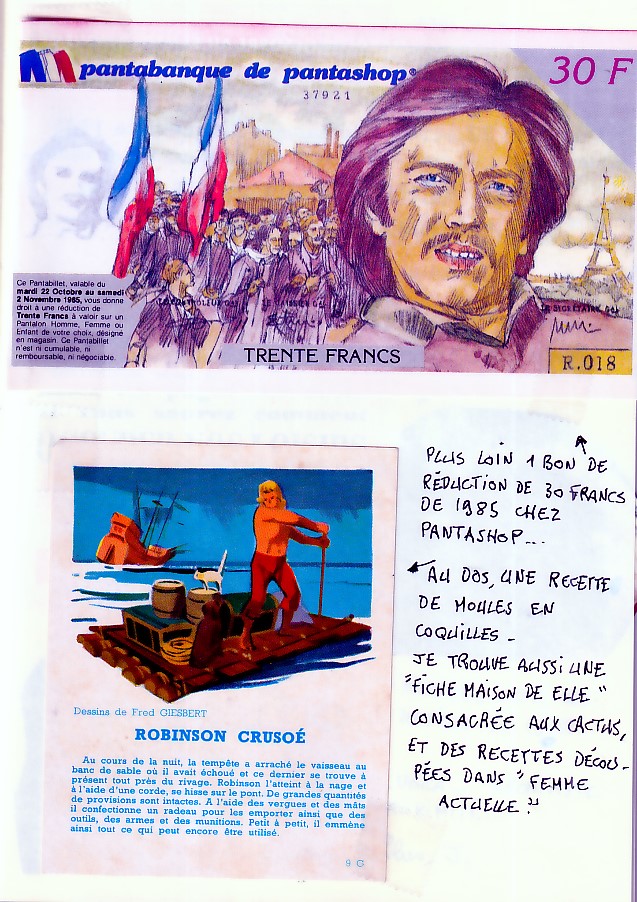 pantabanque de pantashop®
30 F
37921
Ce Pantabillet, valable du
mardi 22 Octobre au samedi
2 Novembre 1985, vous donne
droit à une réduction de
Trente Francs à valoir sur un
Pantalon Homme, Femme ou
Enfant de votre choix, désigné
en magasin. Ce Pantabillet
n'est ni cumulable, ni
remboursable, ni négociable.
TRENTE FRANCS
R.018
PLUS LOIN 1 BON DE
RÉDUCTION DE 30 FRANCS
DE 1985 CHEZ
PANTASHOP...
AU DOS, UNE RECETTE
DE MOULES EN
COQUILLES -
JE TROUVE AUSSI UNE
"FICHE MAISON DE ELLE"
CONSACRÉE AUX CACTUS,
ET DES RECETTES DÉCOU-
PÉES DANS "FEMME
ACTUELLE".
Dessins de Fred GIESBERT
ROBINSON CRUSOÉ
Au cours de la nuit, la tempête a arraché le vaisseau au
banc de sable où il avait échoué et ce dernier se trouve à
présent tout près du rivage. Robinson l'atteint à la nage et
à l'aide d'une corde, se hisse sur le pont. De grandes quantités
de provisions sont intactes. A l'aide des vergues et des mâts
il confectionne un radeau pour les emporter ainsi que des
outils, des armes et des munitions. Petit à petit, il emmène
ainsi tout ce qui peut encore être utilisé.
9 G